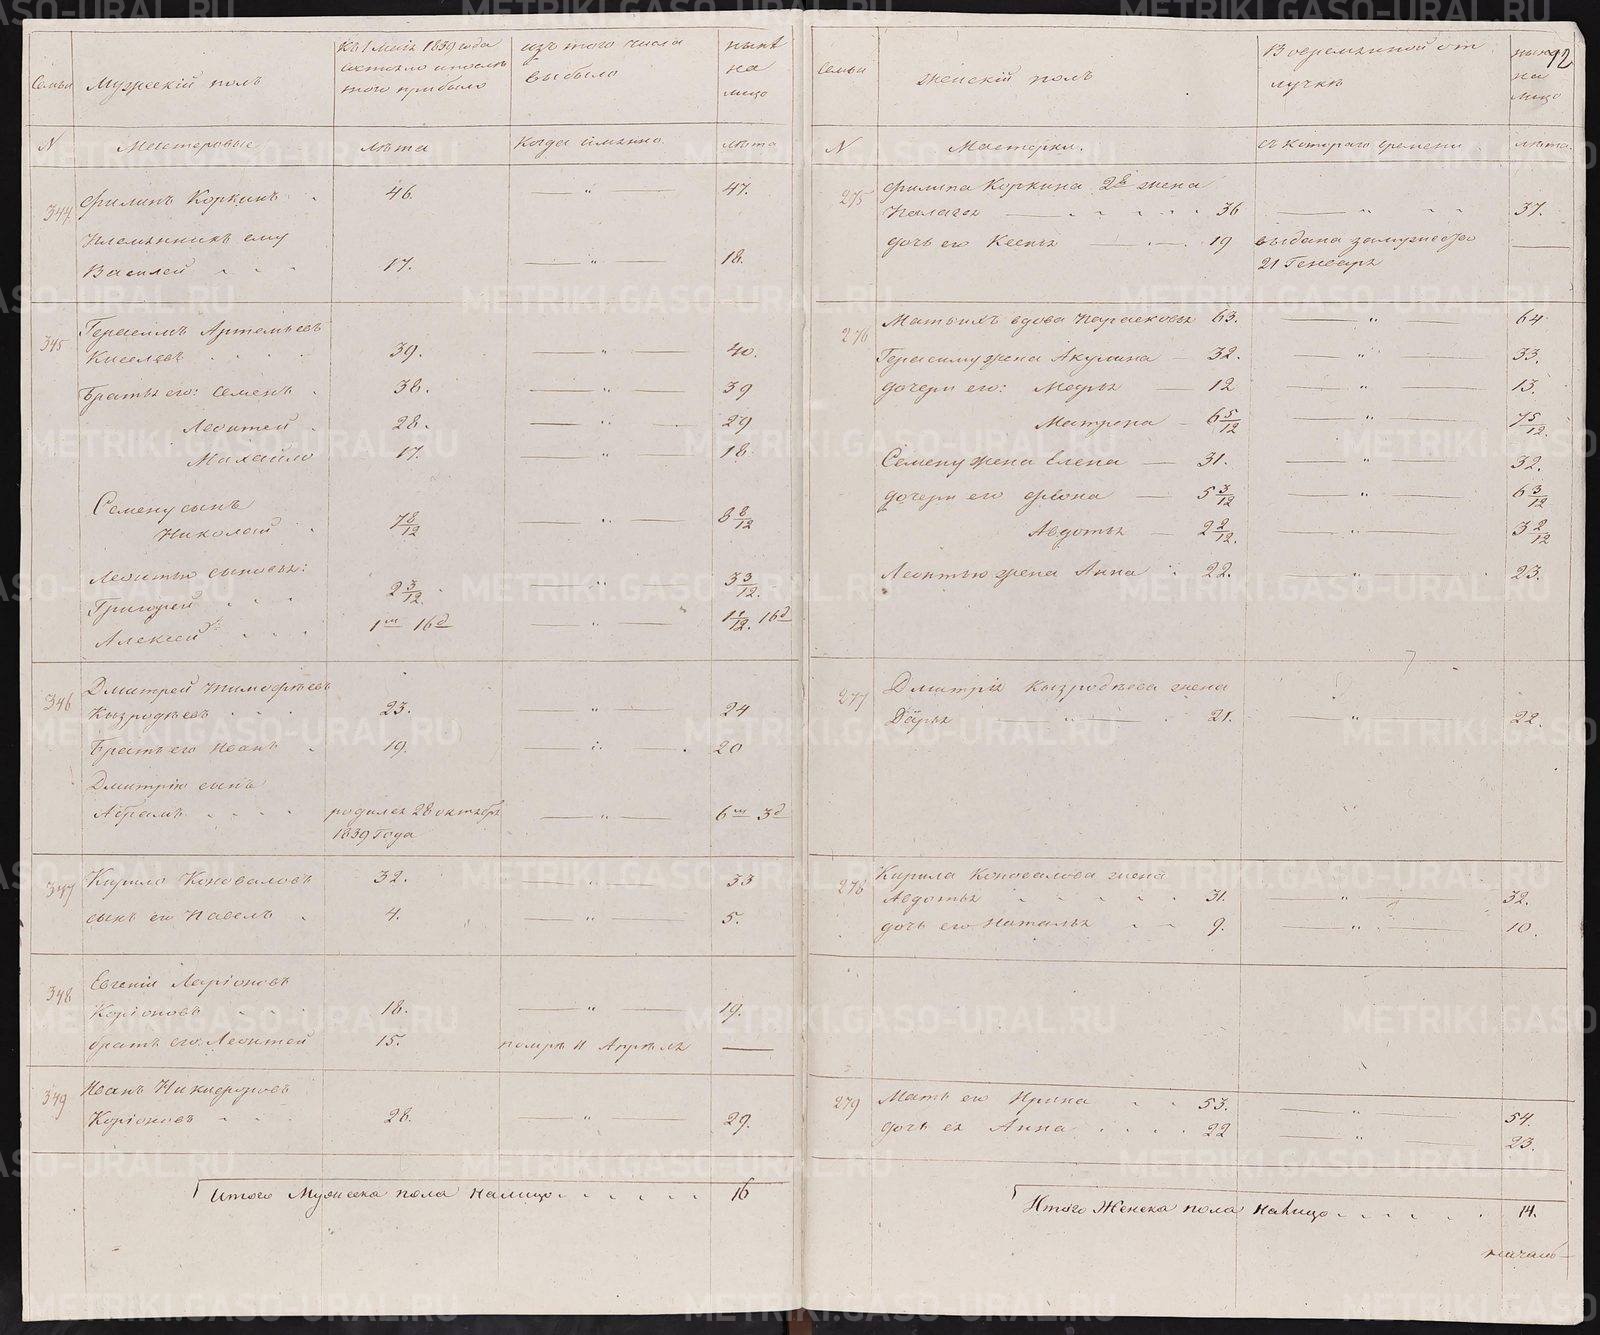 92
Семьи
Мужескій полъ
Къ 1 Маія 1839 года
состояло и послѣ
того прибыло
изъ того числа
выбыло
нынѣ
на
лицо
N
Мастеровые
лѣта
Когда имянно
лѣта
344 Филипъ Коркинъ 46. — " — 47.
Племянникъ ему
Василей 17. — " — 18.
345 Герасимъ Артемьевъ
Киселевъ 39. " — 40.
Братья его: Семенъ 38. — " — 39
Леонтей 28. — " — 29
Михайло 17. — " — 18.
Семену сынъ
Николай 7 8/12 — " — 8 8/12
Леонтью сыновья:
Григорей 2 3/12. — " — 3 3/12.
Алексей 1м 16д — " — 1 1/12. 16д
346 Дмитрей Тимофѣевъ
Кызродѣевъ 23. — " — 24
Братъ его Иванъ 19. — " — 20
Дмитрію сынъ
Абрамъ родился 28 октября — " — 6м 3д
1839 года
347 Кирило Коноваловъ 32. — " — 33
сынъ его Павелъ 4. — " — 5.
348 Евгеній Ларіоновъ
Коріоновъ 18. — " — 19.
братъ его Леонтей 15. помре 11 Апрѣля —
349 Иванъ Никифоровъ
Коріоновъ 28. — " — 29.
Итого Мужеска пола налицо 16
Семьи
Женскій полъ
Во временной от
лучкѣ
ныне
на
лицо
N
Мастерки.
съ котораго времени
лѣта.
275 Филипа Коркина 2я жена
Палагея — 36 — " 37.
дочь его Ксенья — 19 выдана замужество —
21 Генваря
276 Мать ихъ вдова Парасковья 63. — " — 64
Герасиму жена Акулина — 32. — " — 33.
дочери его: Марья — 12 — " — 13.
Матрена — 6 5/12 — " — 7 5/12.
Семену жена Елена — 31. — " — 32.
дочери его — 5 3/12 — " — 6 3/12
Авдотья — 2 2/12. — " — 3 2/12
Леонтью жена Анна 22. — " — 23.
277 Дмитрія Кызродѣева жена
Дарья " — 21. — " — 22.
278 Кирила Коновалова жена
Авдотья 31. — " — 32.
дочь его Наталья 9. — " — 10.
279 Мать его Ирина 53. — " — 54.
дочь ея Анна 22 — " — 23.
Итого Женска пола налицо 14.